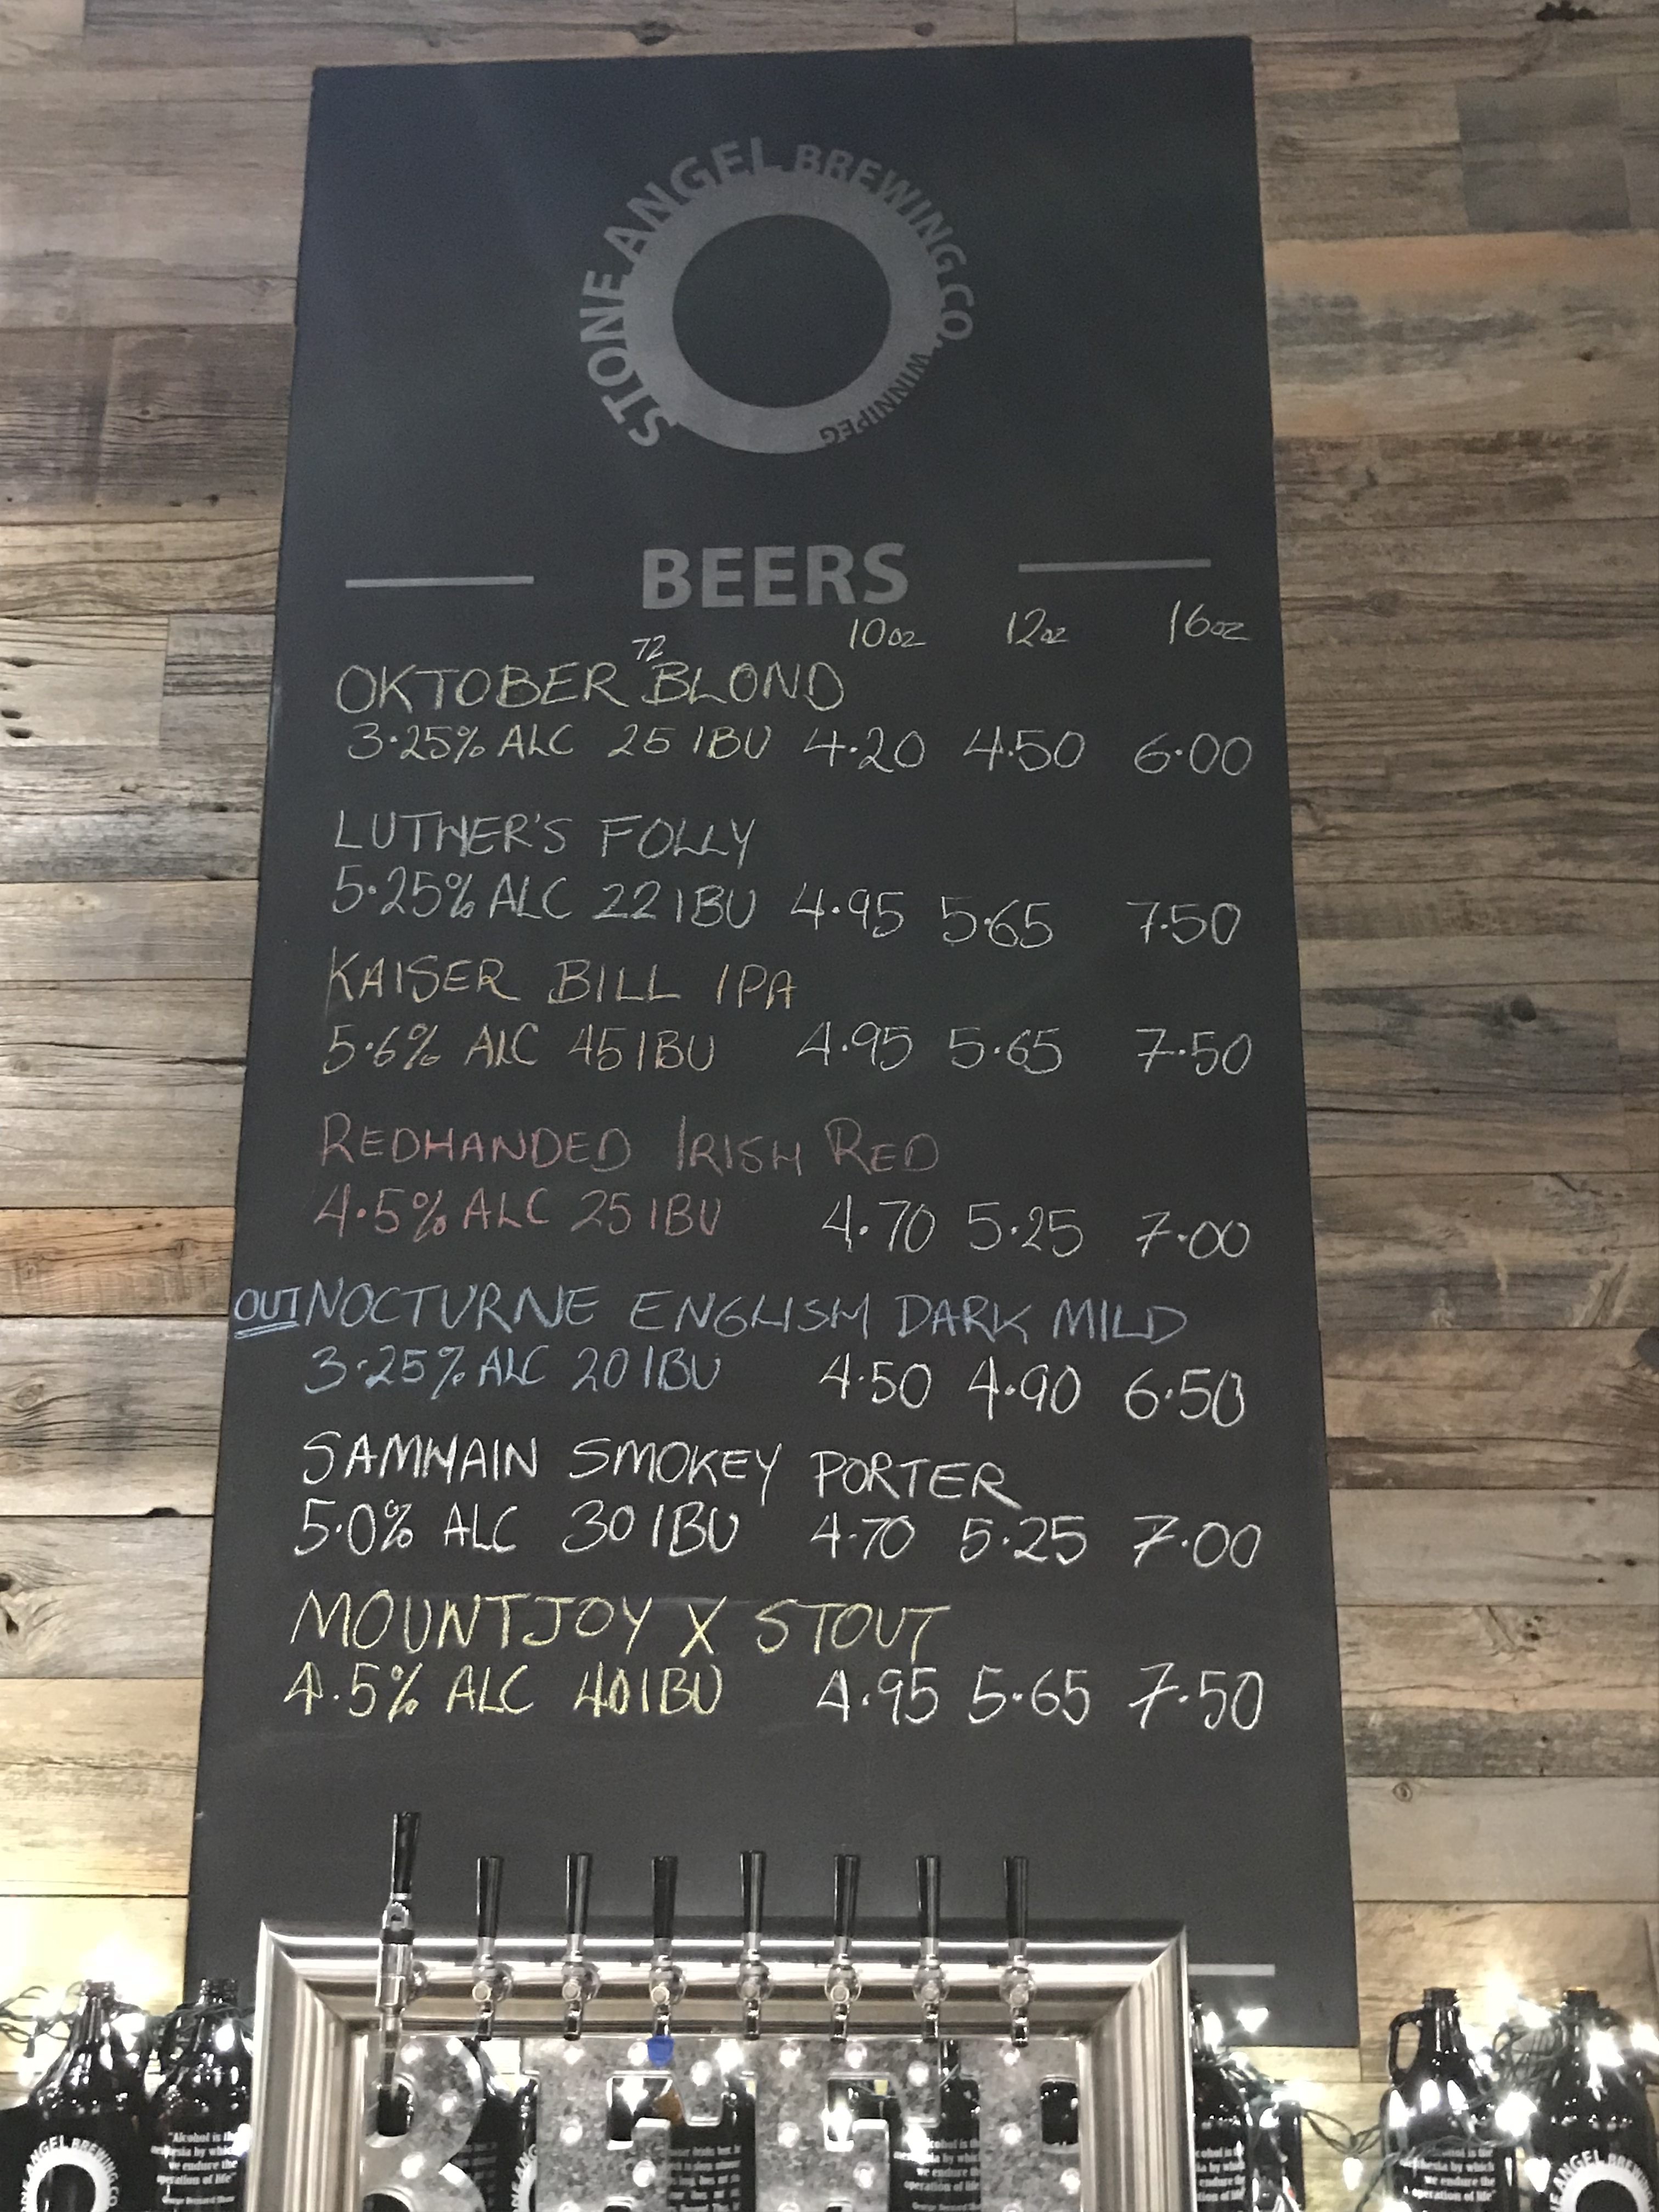 STONE ANGEL BREWING CO. WINNIPEG
BEERS
10oz 12oz 16oz
72
OKTOBER BLOND
3.25% ALC 25 IBU 4.20 4.50 6.00
LUTHER'S FOLLY
5.25% ALC 22 IBU 4.95 5.65 7.50
KAISER BILL IPA
5.6% ALC 45 IBU 4.95 5.65 7.50
REDHANDED IRISH RED
4.5% ALC 25 IBU 4.70 5.25 7.00
OUT NOCTURNE ENGLISH DARK MILD
3.25% ALC 20 IBU 4.50 4.90 6.50
SAMHAIN SMOKEY PORTER
5.0% ALC 30 IBU 4.70 5.25 7.00
MOUNTJOY X STOUT
4.5% ALC 40 IBU 4.95 5.65 7.50
ANGEL BREWING CO
"Alcohol is the
by which
we endure the
operation of life"
George Bernard Shaw
ANGEL BREWING